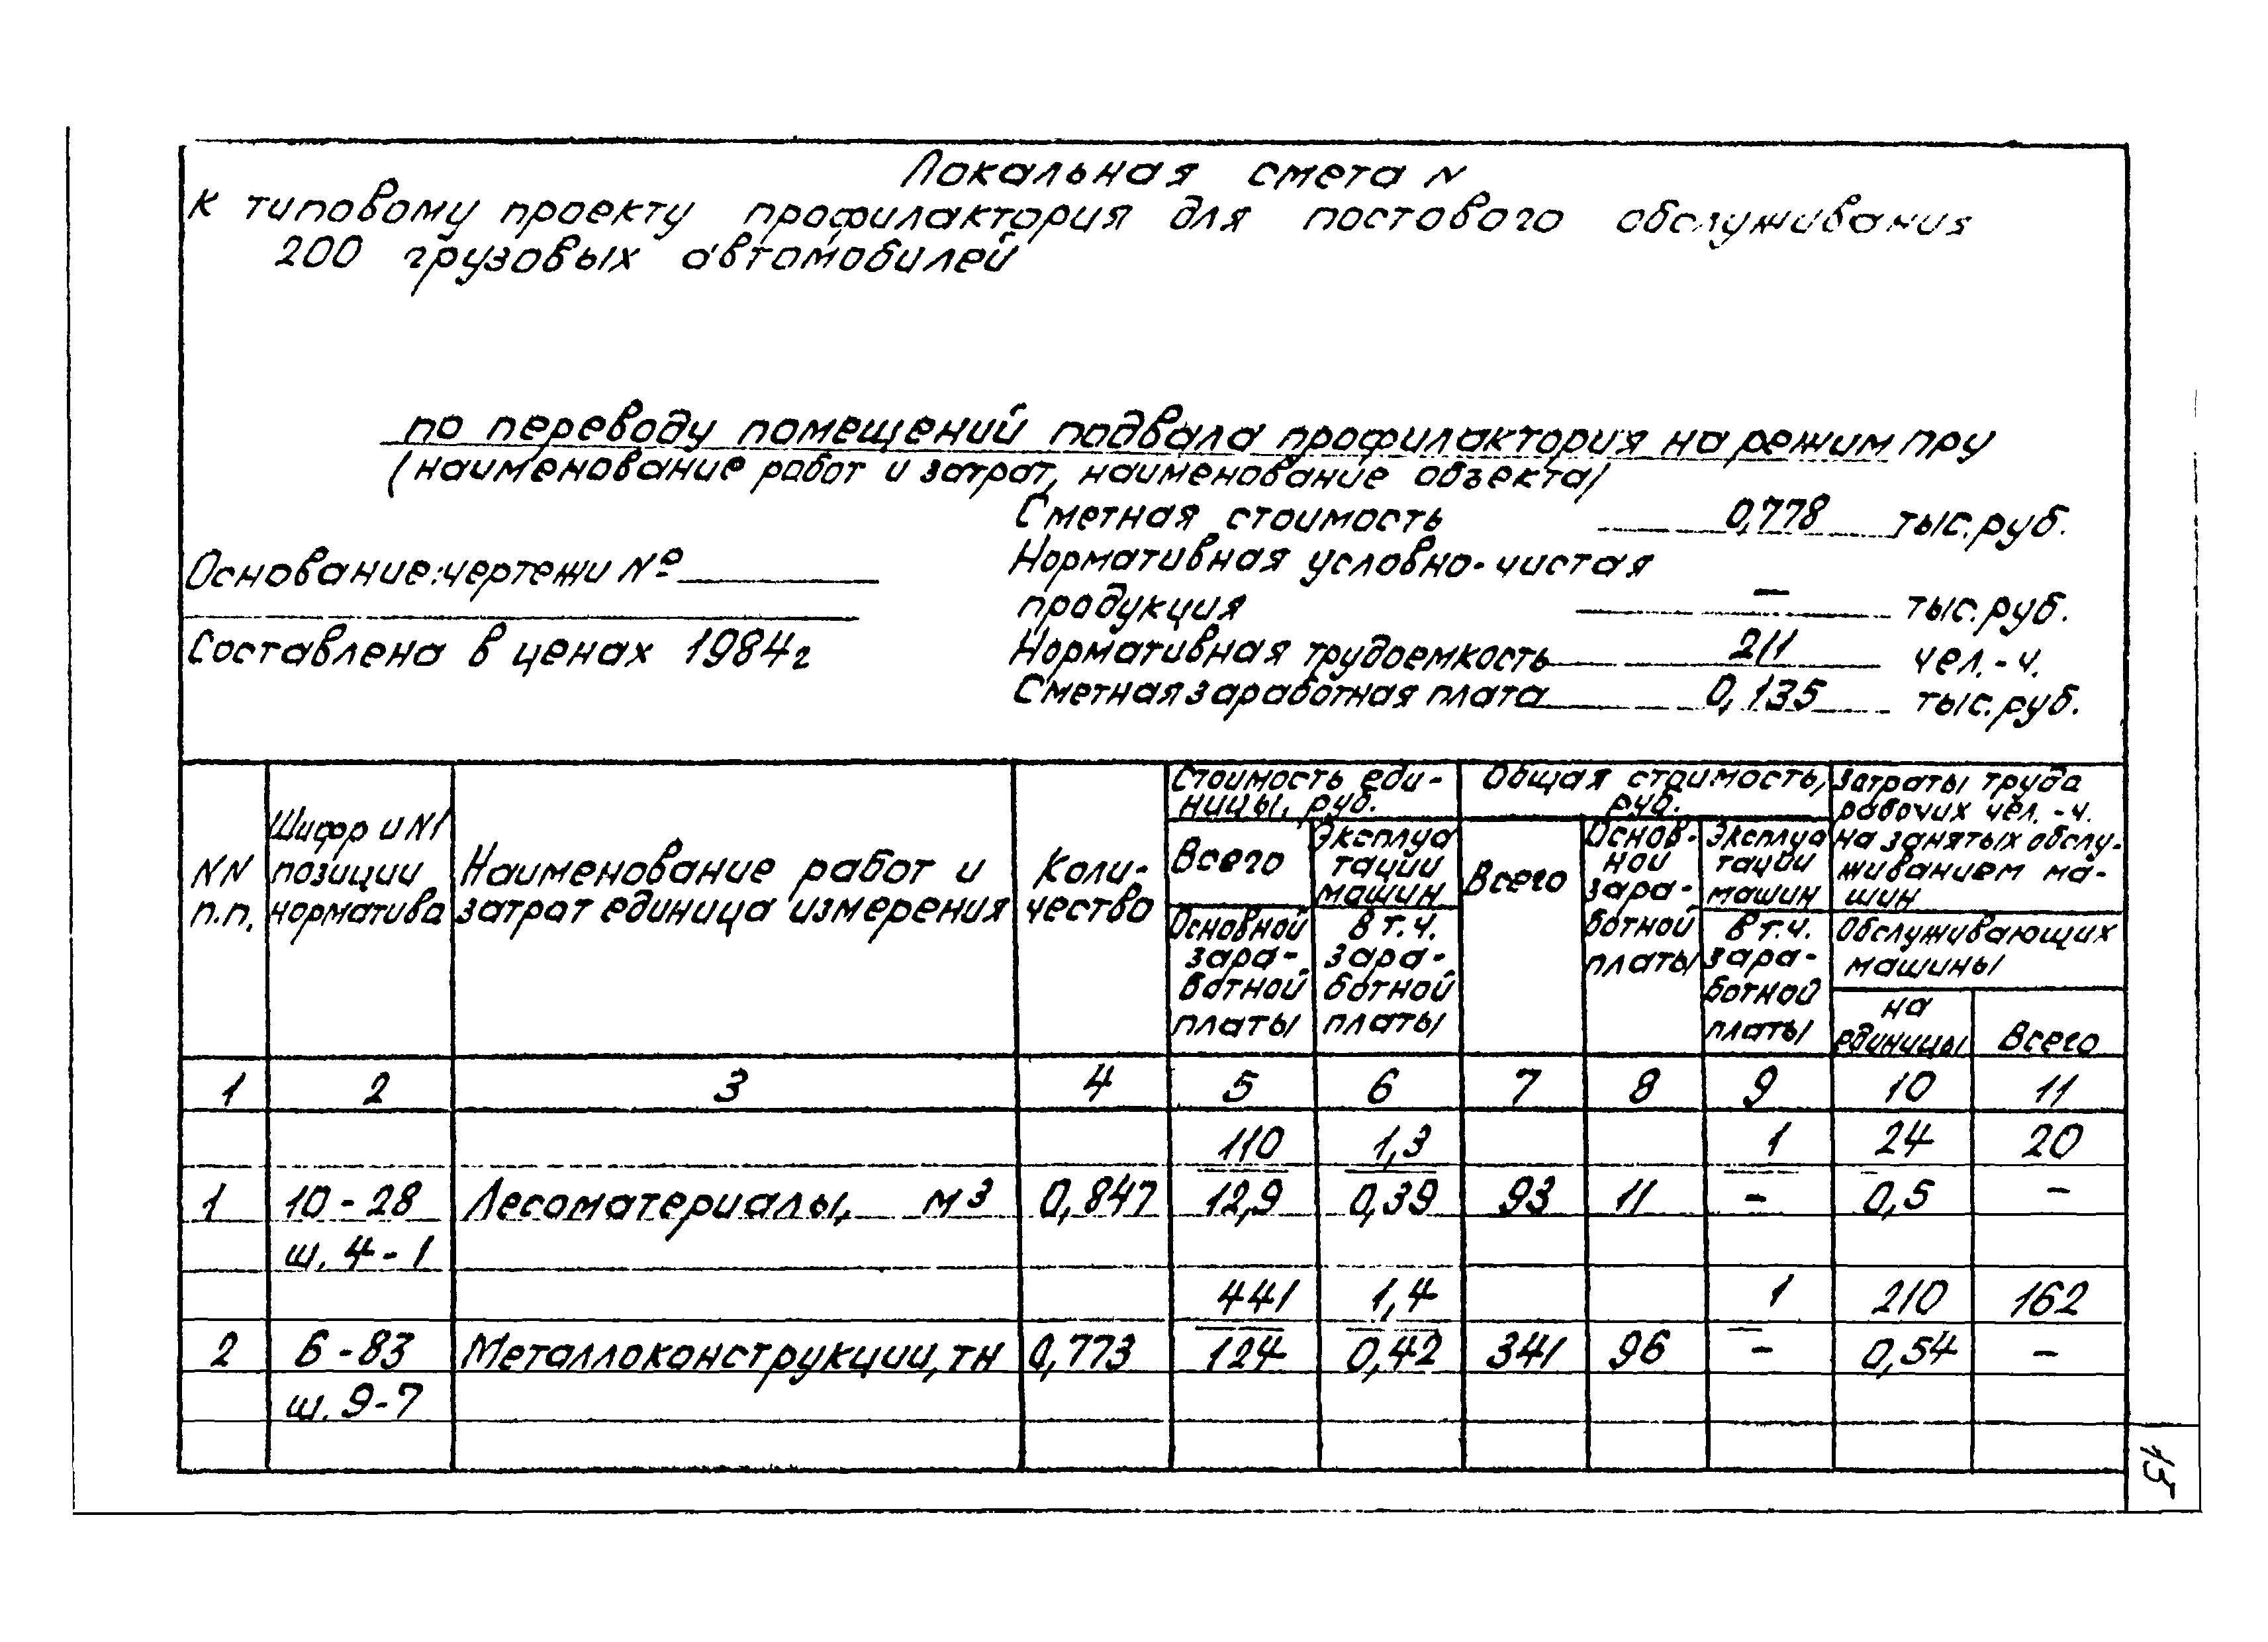 Локальная смета N
к типовому проекту профилактория для постового обслуживания
200 грузовых автомобилей
по переводу помещений подвала профилактория на режим пру
(наименование работ и затрат, наименование объекта)
Сметная стоимость 0,778 тыс.руб.
Основание: чертежи №
Нормативная условно-чистая
продукция — тыс.руб.
Составлена в ценах 1984г
Нормативная трудоемкость 211 чел.-ч.
Сметная заработная плата 0,135 тыс.руб.
NN
п.п.
Шифр и N
позиции
норматива
Наименование работ и
затрат единица измерения
Коли-
чество
Стоимость еди-
ницы, руб.
Всего
Основной
зара-
ботной
платы
Эксплуа
тации
машин
В т.ч.
зара-
ботной
платы
Общая стоимость,
руб.
Всего
Основ-
ной
зара-
ботной
платы
Эксплуа
тации
машин
В т.ч.
зара-
ботной
платы
Затраты труда
рабочих чел.-ч.
на занятых обслу-
живанием ма-
шин
Обслуживающих
машины
на
единицы
Всего
1 2 3 4 5 6 7 8 9 10 11
110 1,3 1 24 20
1 10-28 Лесоматериалы, м3 0,847 12,9 0,39 93 11 - 0,5 -
ш. 4-1
441 1,4 1 210 162
2 6-83 Металлоконструкции, тн 0,773 124 0,42 341 96 - 0,54 -
ш. 9-7
15